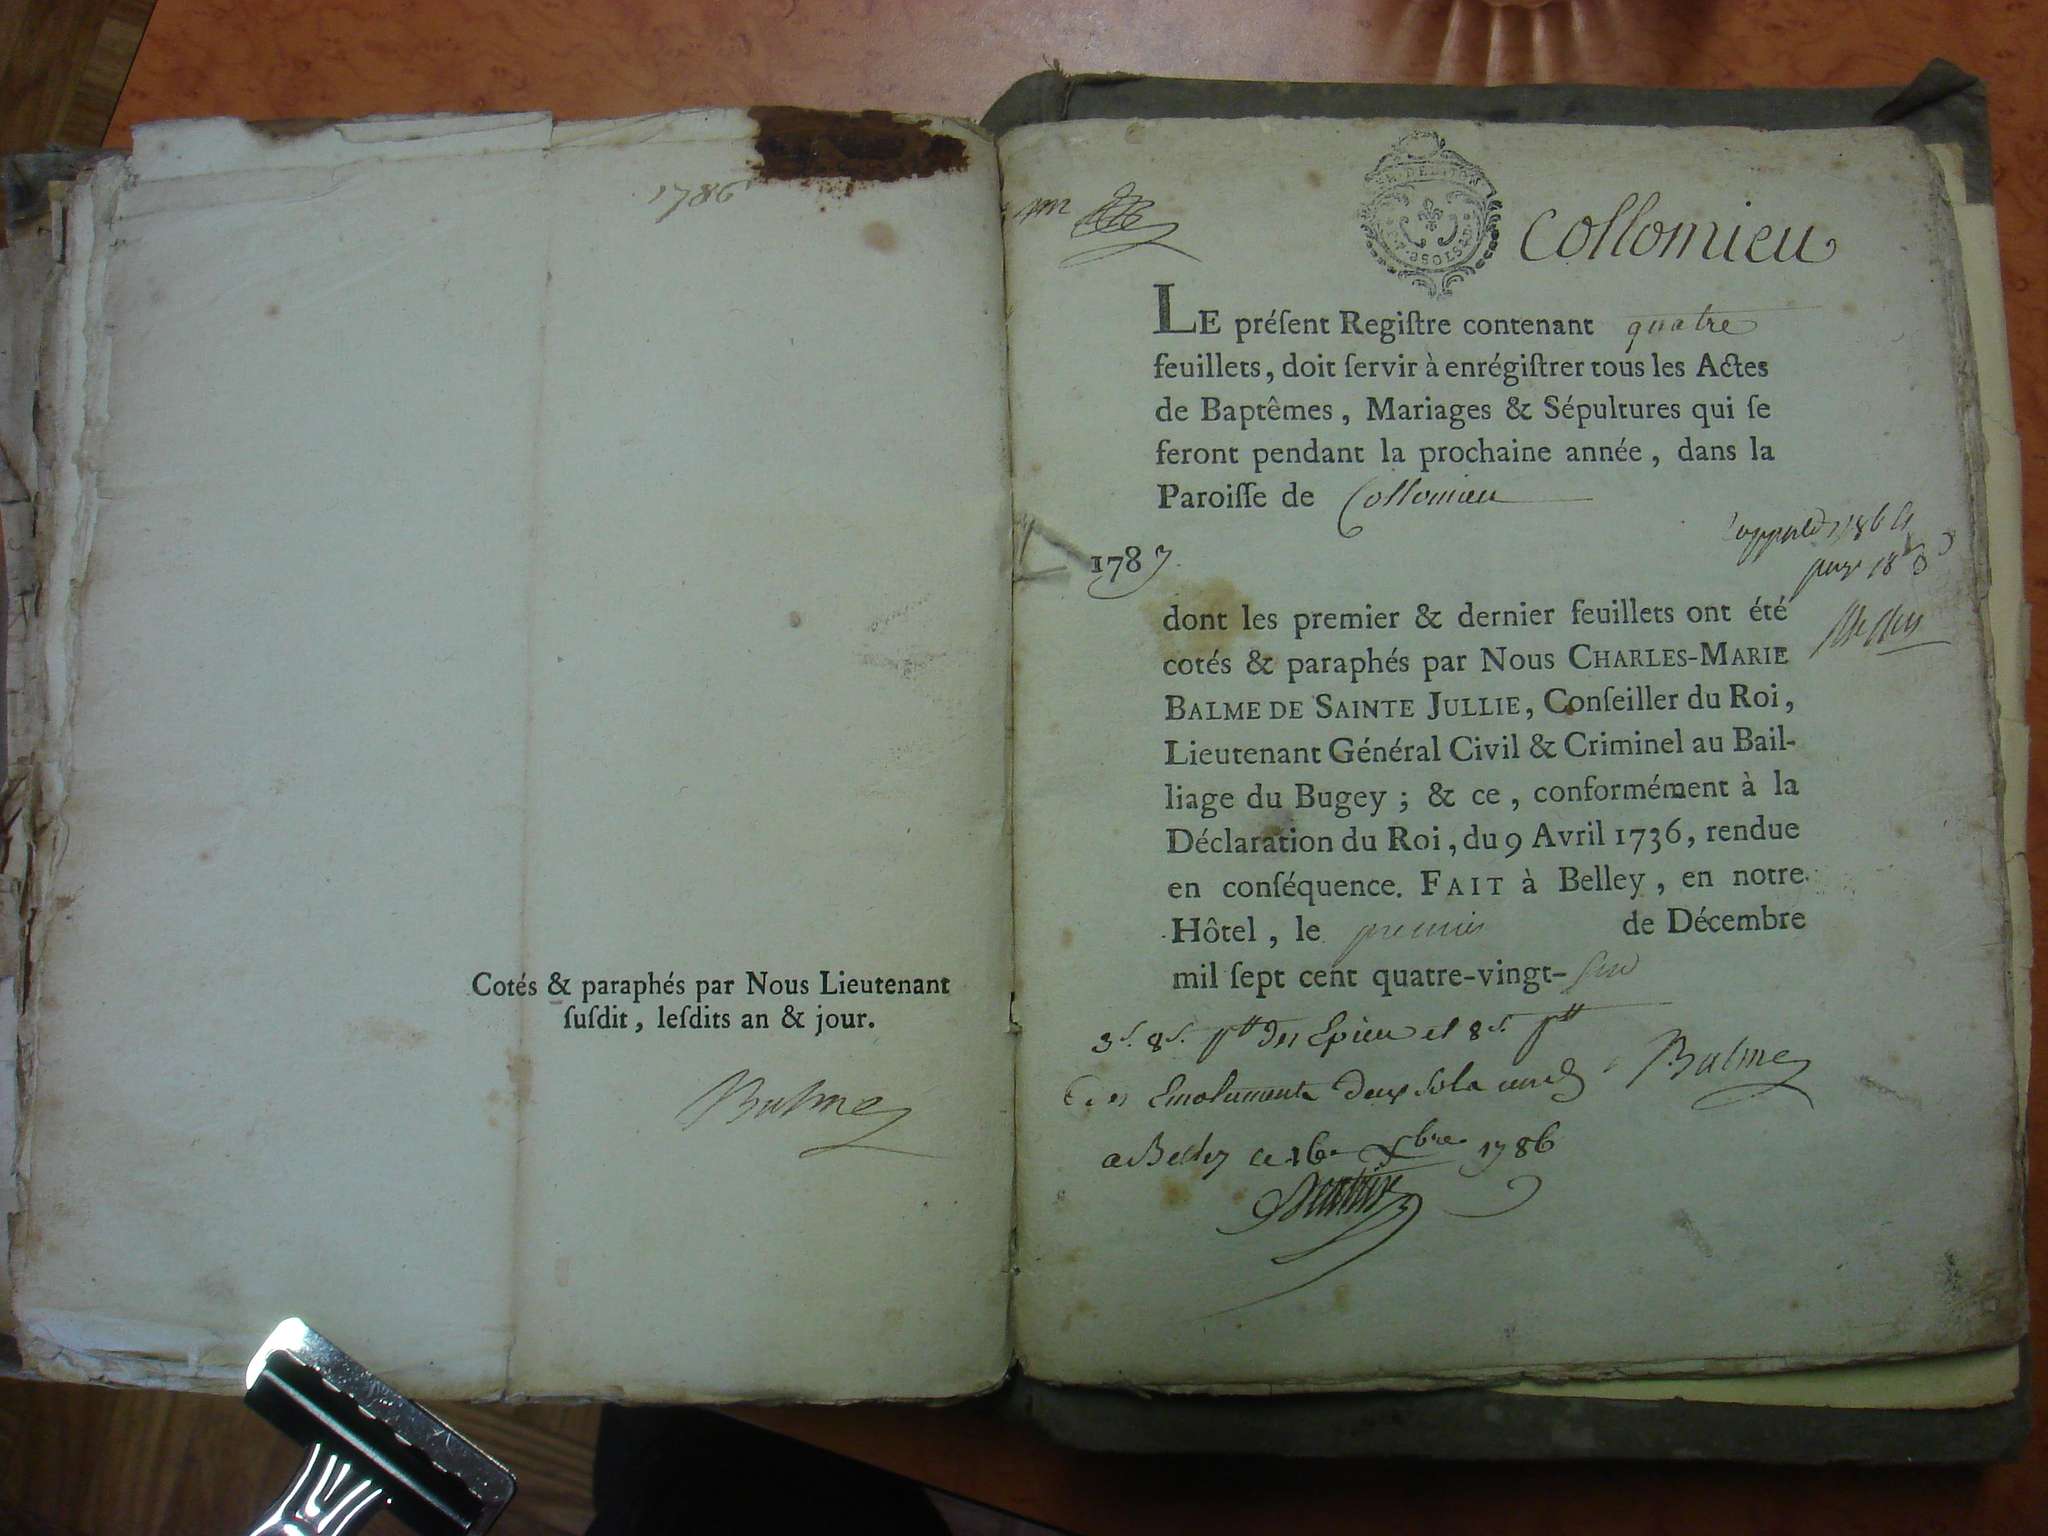 1786
Cotés & paraphés par Nous Lieutenant
ſuſdit, leſdits an & jour.
Balme
Collomieu
LE préſent Regiſtre contenant quatre
feuillets, doit ſervir à enrégiſtrer tous les Actes
de Baptêmes, Mariages & Sépultures qui ſe
feront pendant la prochaine année, dans la
Paroiſſe de Collomieu
1787
dont les premier & dernier feuillets ont été
cotés & paraphés par Nous CHARLES-MARIE
BALME DE SAINTE JULLIE, Conſeiller du Roi,
Lieutenant Général Civil & Criminel au Bail-
liage du Bugey ; & ce, conformément à la
Déclaration du Roi, du 9 Avril 1736, rendue
en conſéquence. FAIT à Belley, en notre
Hôtel, le premier de Décembre
mil ſept cent quatre-vingt-six
et 8s.
Emoluments deux sols
Balme
a Belley ce 16e Xbre 1786